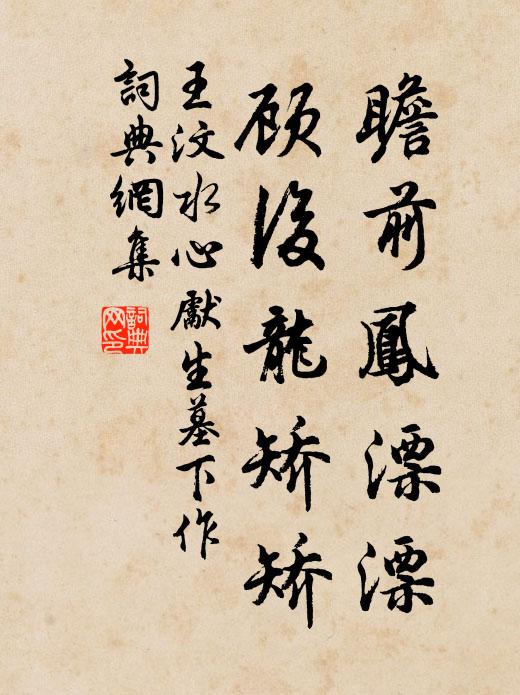 瞻前鳳漂漂
顧後龍矯矯
王汶水心獻生墓下作
詞典網集
詞典网印